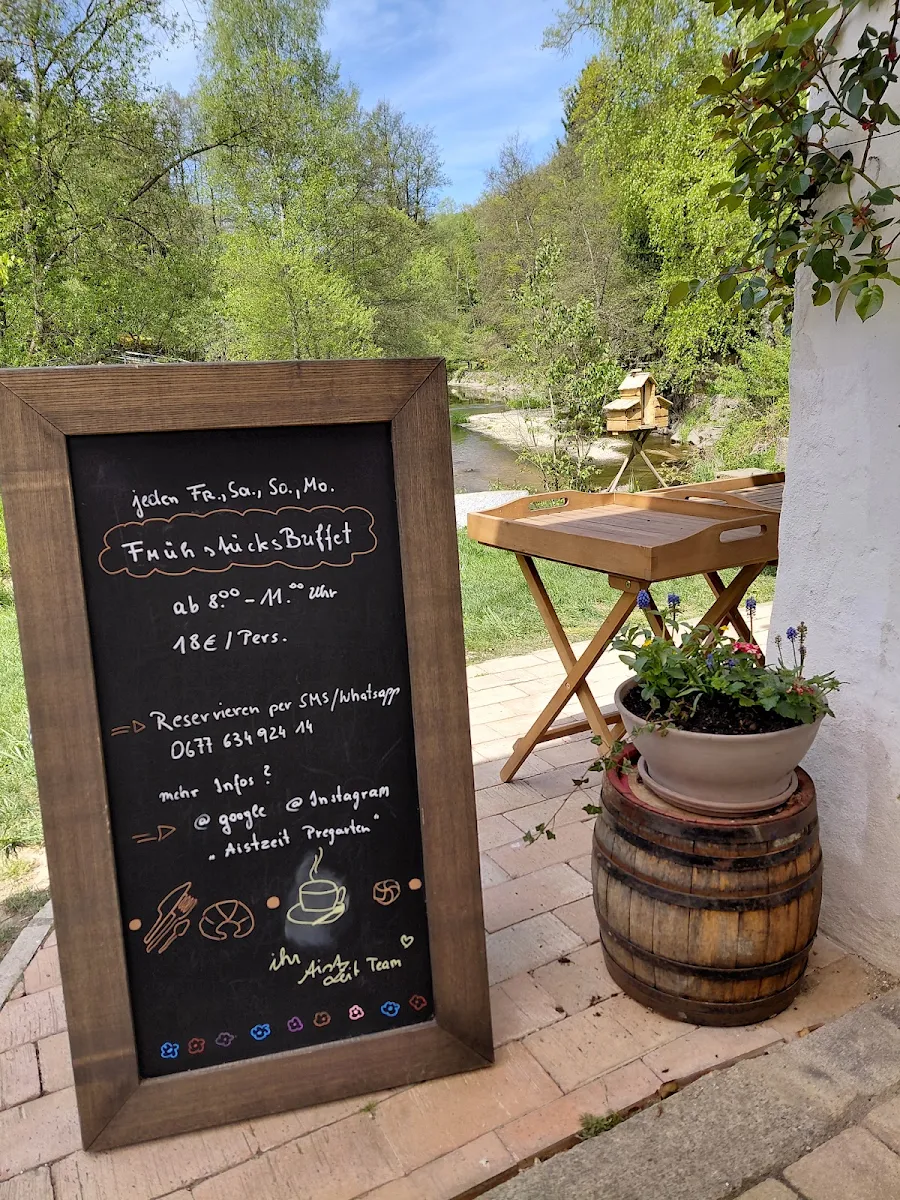 jeden Fr., Sa., So., Mo.
FrühstücksBuffet
ab 8.⁰⁰ - 11.⁰⁰ Uhr
18€ / Pers.
⇒ Reservieren per SMS/Whatsapp
0677 634 924 14
mehr Infos?
@ google @ Instagram
⇒ „Aistzeit Pregarten"
ihr Aistzeit Team ♡